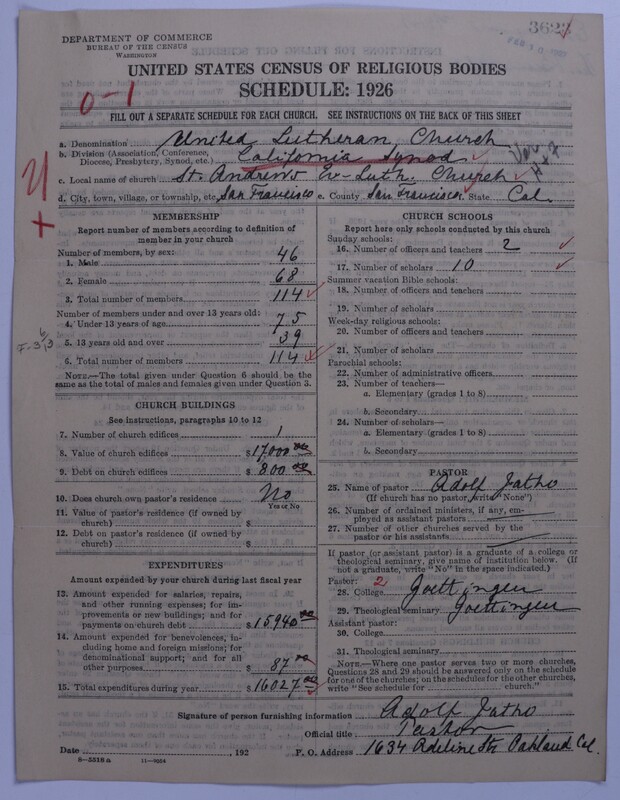 3623
FEB 10 1927
DEPARTMENT OF COMMERCE
BUREAU OF THE CENSUS
WASHINGTON
UNITED STATES CENSUS OF RELIGIOUS BODIES
SCHEDULE: 1926
0-1
FILL OUT A SEPARATE SCHEDULE FOR EACH CHURCH. SEE INSTRUCTIONS ON THE BACK OF THIS SHEET
a. Denomination United Lutheran Church
b. Division (Association, Conference, Diocese, Presbytery, Synod, etc.) California Synod
c. Local name of church St. Andrews Ev-Luth. Church
d. City, town, village, or township, etc. San Francisco e. County San Francisco State Cal.
MEMBERSHIP
Report number of members according to definition of
member in your church
Number of members, by sex:
1. Male 46
2. Female 68
3. Total number of members 114
Number of members under and over 13 years old:
4. Under 13 years of age 75
5. 13 years old and over 39
6. Total number of members 114
NOTE.—The total given under Question 6 should be the
same as the total of males and females given under Question 3.
CHURCH BUILDINGS
See instructions, paragraphs 10 to 12
7. Number of church edifices 1
8. Value of church edifices $17,000 00
9. Debt on church edifices $800 00
10. Does church own pastor's residence No
Yes or No
11. Value of pastor's residence (if owned by
church) $
12. Debt on pastor's residence (if owned by
church) $
EXPENDITURES
Amount expended by your church during last fiscal year
13. Amount expended for salaries, repairs,
and other running expenses; for im-
provements or new buildings; and for
payments on church debt $15940 00
14. Amount expended for benevolences, in-
cluding home and foreign missions; for
denominational support; and for all
other purposes $87 00
15. Total expenditures during year $16027 00
CHURCH SCHOOLS
Report here only schools conducted by this church
Sunday schools:
16. Number of officers and teachers 2
17. Number of scholars 10
Summer vacation Bible schools:
18. Number of officers and teachers
19. Number of scholars
Week-day religious schools:
20. Number of officers and teachers
21. Number of scholars
Parochial schools:
22. Number of administrative officers
23. Number of teachers—
a. Elementary (grades 1 to 8)
b. Secondary
24. Number of scholars—
a. Elementary (grades 1 to 8)
b. Secondary
PASTOR
25. Name of pastor Adolf Jatho
(If church has no pastor, write "None")
26. Number of ordained ministers, if any, em-
ployed as assistant pastors
27. Number of other churches served by the
pastor or his assistants
If pastor (or assistant pastor) is a graduate of a college or
theological seminary, give name of institution below. (If
not a graduate, write "No" in the space indicated.)
Pastor: 2
28. College Goettingen
29. Theological seminary Goettingen
Assistant pastor:
30. College
31. Theological seminary
NOTE.—Where one pastor serves two or more churches,
Questions 28 and 29 should be answered only on the schedule
for one of the churches; on the schedules for the other churches,
write "See schedule for church."
Signature of person furnishing information Adolf Jatho
Official title Pastor
Date , 192 P. O. Address 1634 Adeline Str. Oakland Cal.
8—5518 a 11—9664